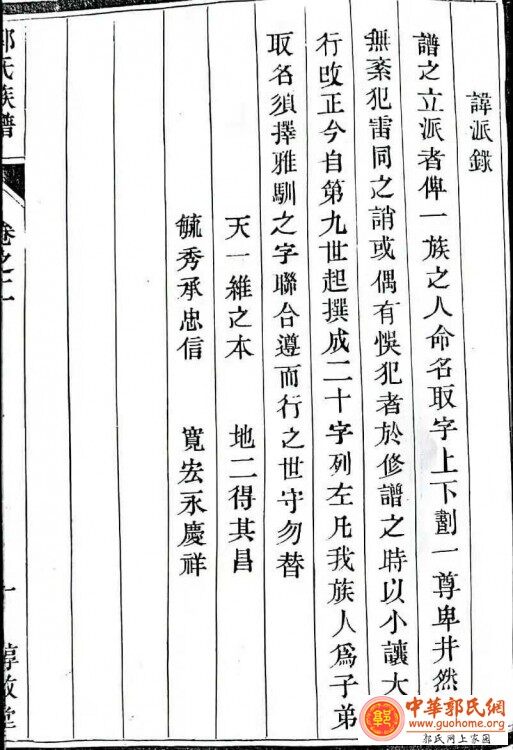 諱派錄
譜之立派者俾一族之人命名取字上下劃一尊卑井然
無紊犯雷同之誚或偶有悞犯者於修譜之時以小讓大
行改正今自第九世起撰成二十字列左凡我族人爲子弟
取名須擇雅馴之字聯合遵而行之世守勿替
天一維之本　地二得其昌
毓秀承忠信　寬宏永慶祥
郭氏族譜
卷之二
十
堂
郭
中華郭氏網
www.guohome.org
郭氏网上家园